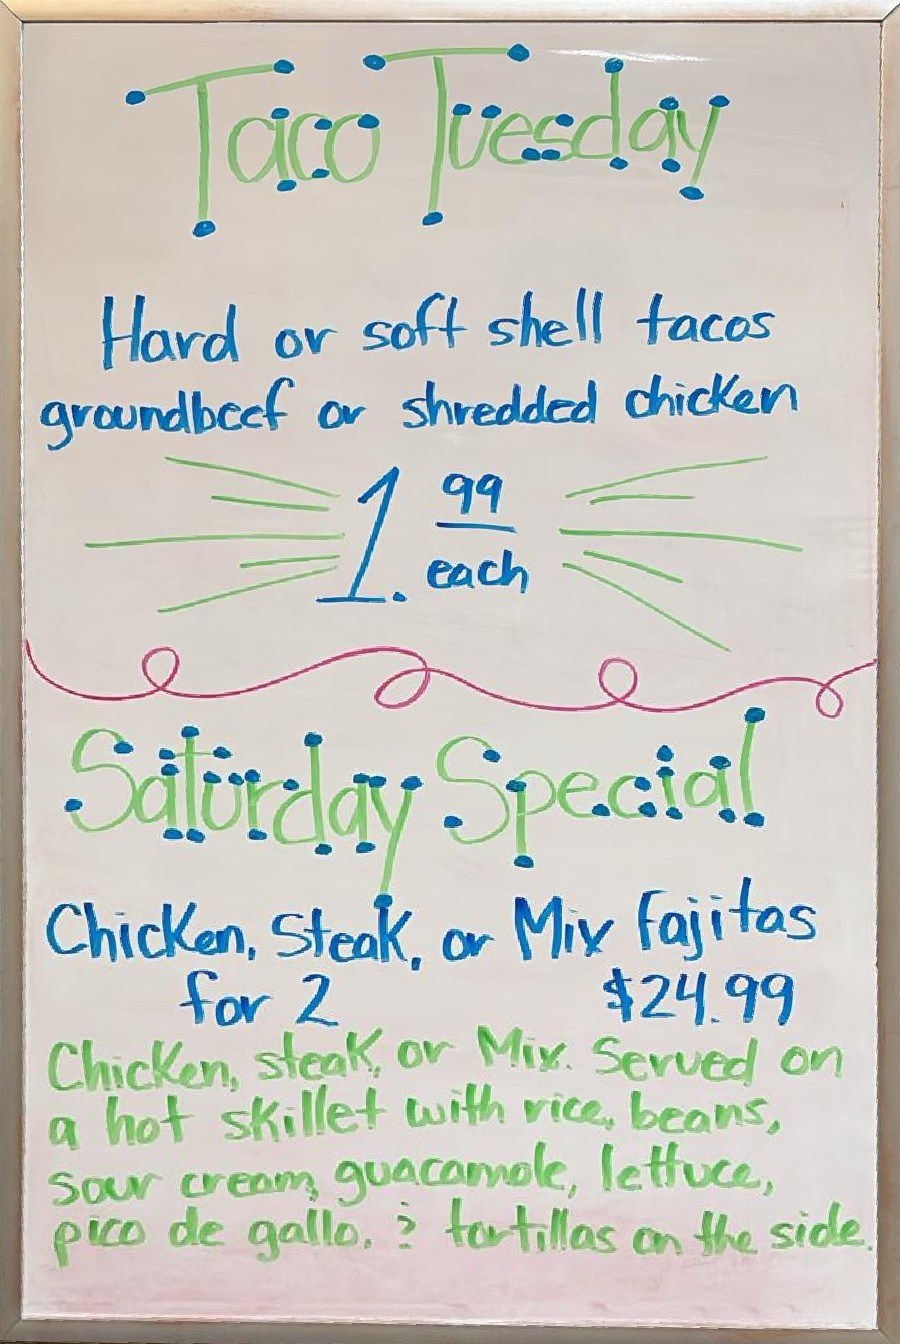 Taco Tuesday
Hard or soft shell tacos
groundbeef or shredded chicken
1. 99
each
Saturday Special
Chicken, Steak, or Mix Fajitas
for 2 $24.99
Chicken, steak, or Mix. Served on
a hot skillet with rice, beans,
sour cream, guacamole, lettuce,
pico de gallo, & tortillas on the side.